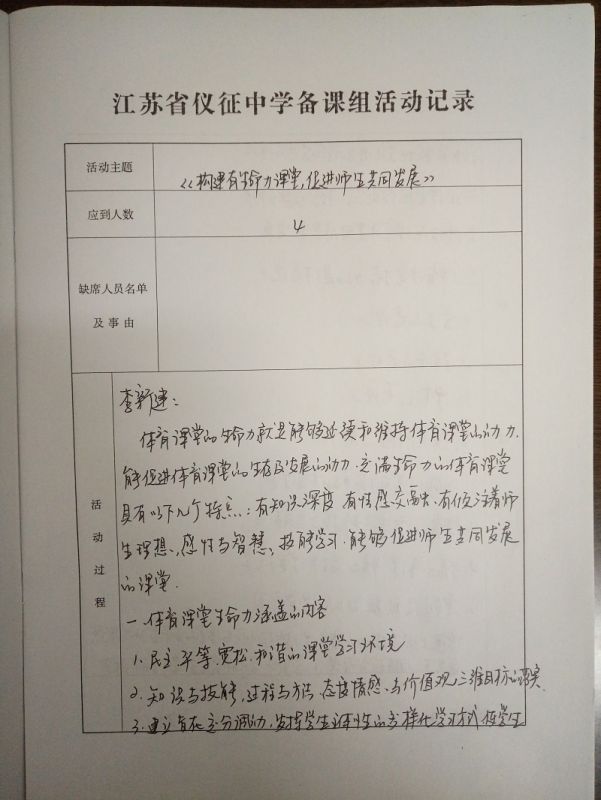 江苏省仪征中学备课组活动记录
活动主题
《构建有生命力课堂,促进师生共同发展》
应到人数
4
缺席人员名单
及事由
活动过程
李新建:
体育课堂的生命力就是能够延续和维持体育课堂的动力,
能促进体育课堂的生存及发展的动力.充满生命力的体育课堂
具有以下几个特点:有知识深度 有情感交融、有倾注着师
生理想、感性与智慧、技能学习.能够促进师生共同发展
的课堂.
一.体育课堂生命力涵盖的内容
1.民主、平等、宽松、和谐的课堂学习环境
2.知识与技能、过程与方法、态度情感、与价值观,三维目标的落实.
3.建立旨在充分调动,发挥学生主体性的多样化学习方式 使学生